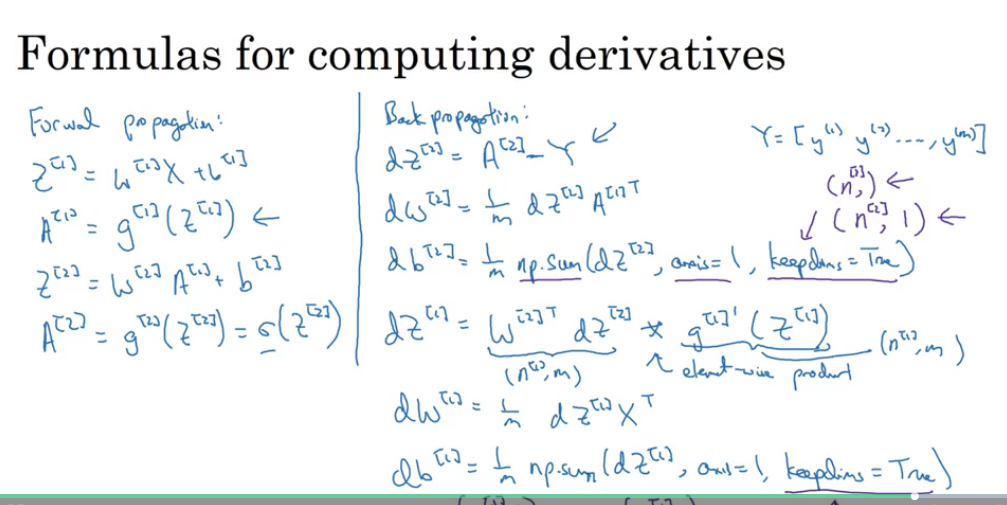 Formulas for computing derivatives
Forward propagation:
Z^[1] = W^[1] X + b^[1]
A^[1] = g^[1](Z^[1]) ←
Z^[2] = W^[2] A^[1] + b^[2]
A^[2] = g^[2](Z^[2]) = σ(Z^[2])
Back propagation:
dZ^[2] = A^[2] - Y ↙
dW^[2] = 1/m dZ^[2] A^[1]T
db^[2] = 1/m np.sum(dZ^[2], axis=1, keepdims=True)
dZ^[1] = W^[2]T dZ^[2] * g^[1]'(Z^[1])
(n^[1], m) ↖ element-wise product (n^[1], m)
dW^[1] = 1/m dZ^[1] X^T
db^[1] = 1/m np.sum(dZ^[1], axis=1, keepdims=True)
Y = [y^(1) y^(2) ..., y^(m)]
(n^[2],) ←
↙ (n^[2], 1) ←